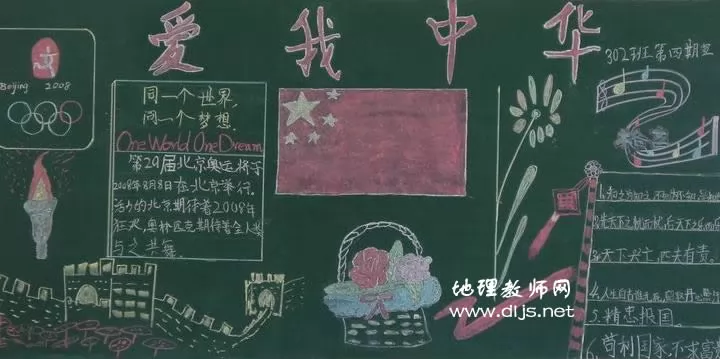 爱我中华
Beijing 2008
同一个世界,
同一个梦想.
One World One Dream
第29届北京奥运将于
2008年8月8日在北京举行.
活力的北京期待着2008年
狂欢,奥林匹克期待着全人类
与之共舞.
302班第四期
天下兴亡,匹夫有责.
4.人生自古谁无死,
5.精忠报国.
6.苟利国家,不求富
地理教师网
www.dljs.net